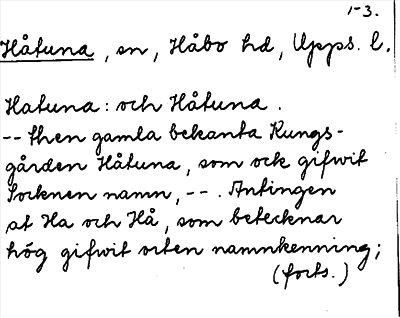 1-3.
Håtuna, sn, Håbo hd, Upps. l.
Hatuna: och Håtuna.
-- then gamla bekanta Kungs-
gården Håtuna, som ock gifwit
Socknen namn, -- . Antingen
at Ha och Hå, som betecknar
hög gifwit orten namnkenning;
(forts.)